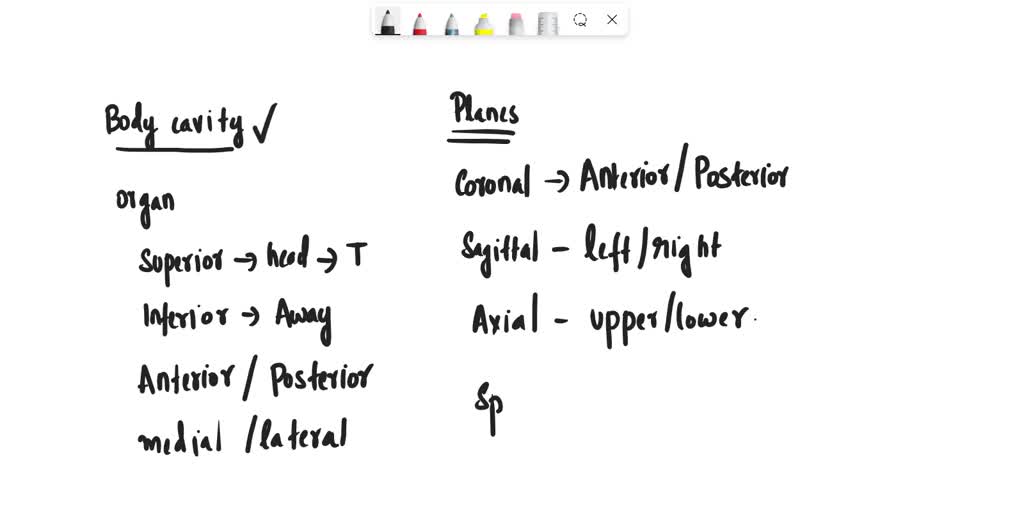 Body cavity ✓
organ
Superior → head → T
Inferior → Away
Anterior / Posterior
medial / lateral
Planes
Coronal → Anterior / Posterior
Sagittal - left / right
Axial - upper / lower
Sp